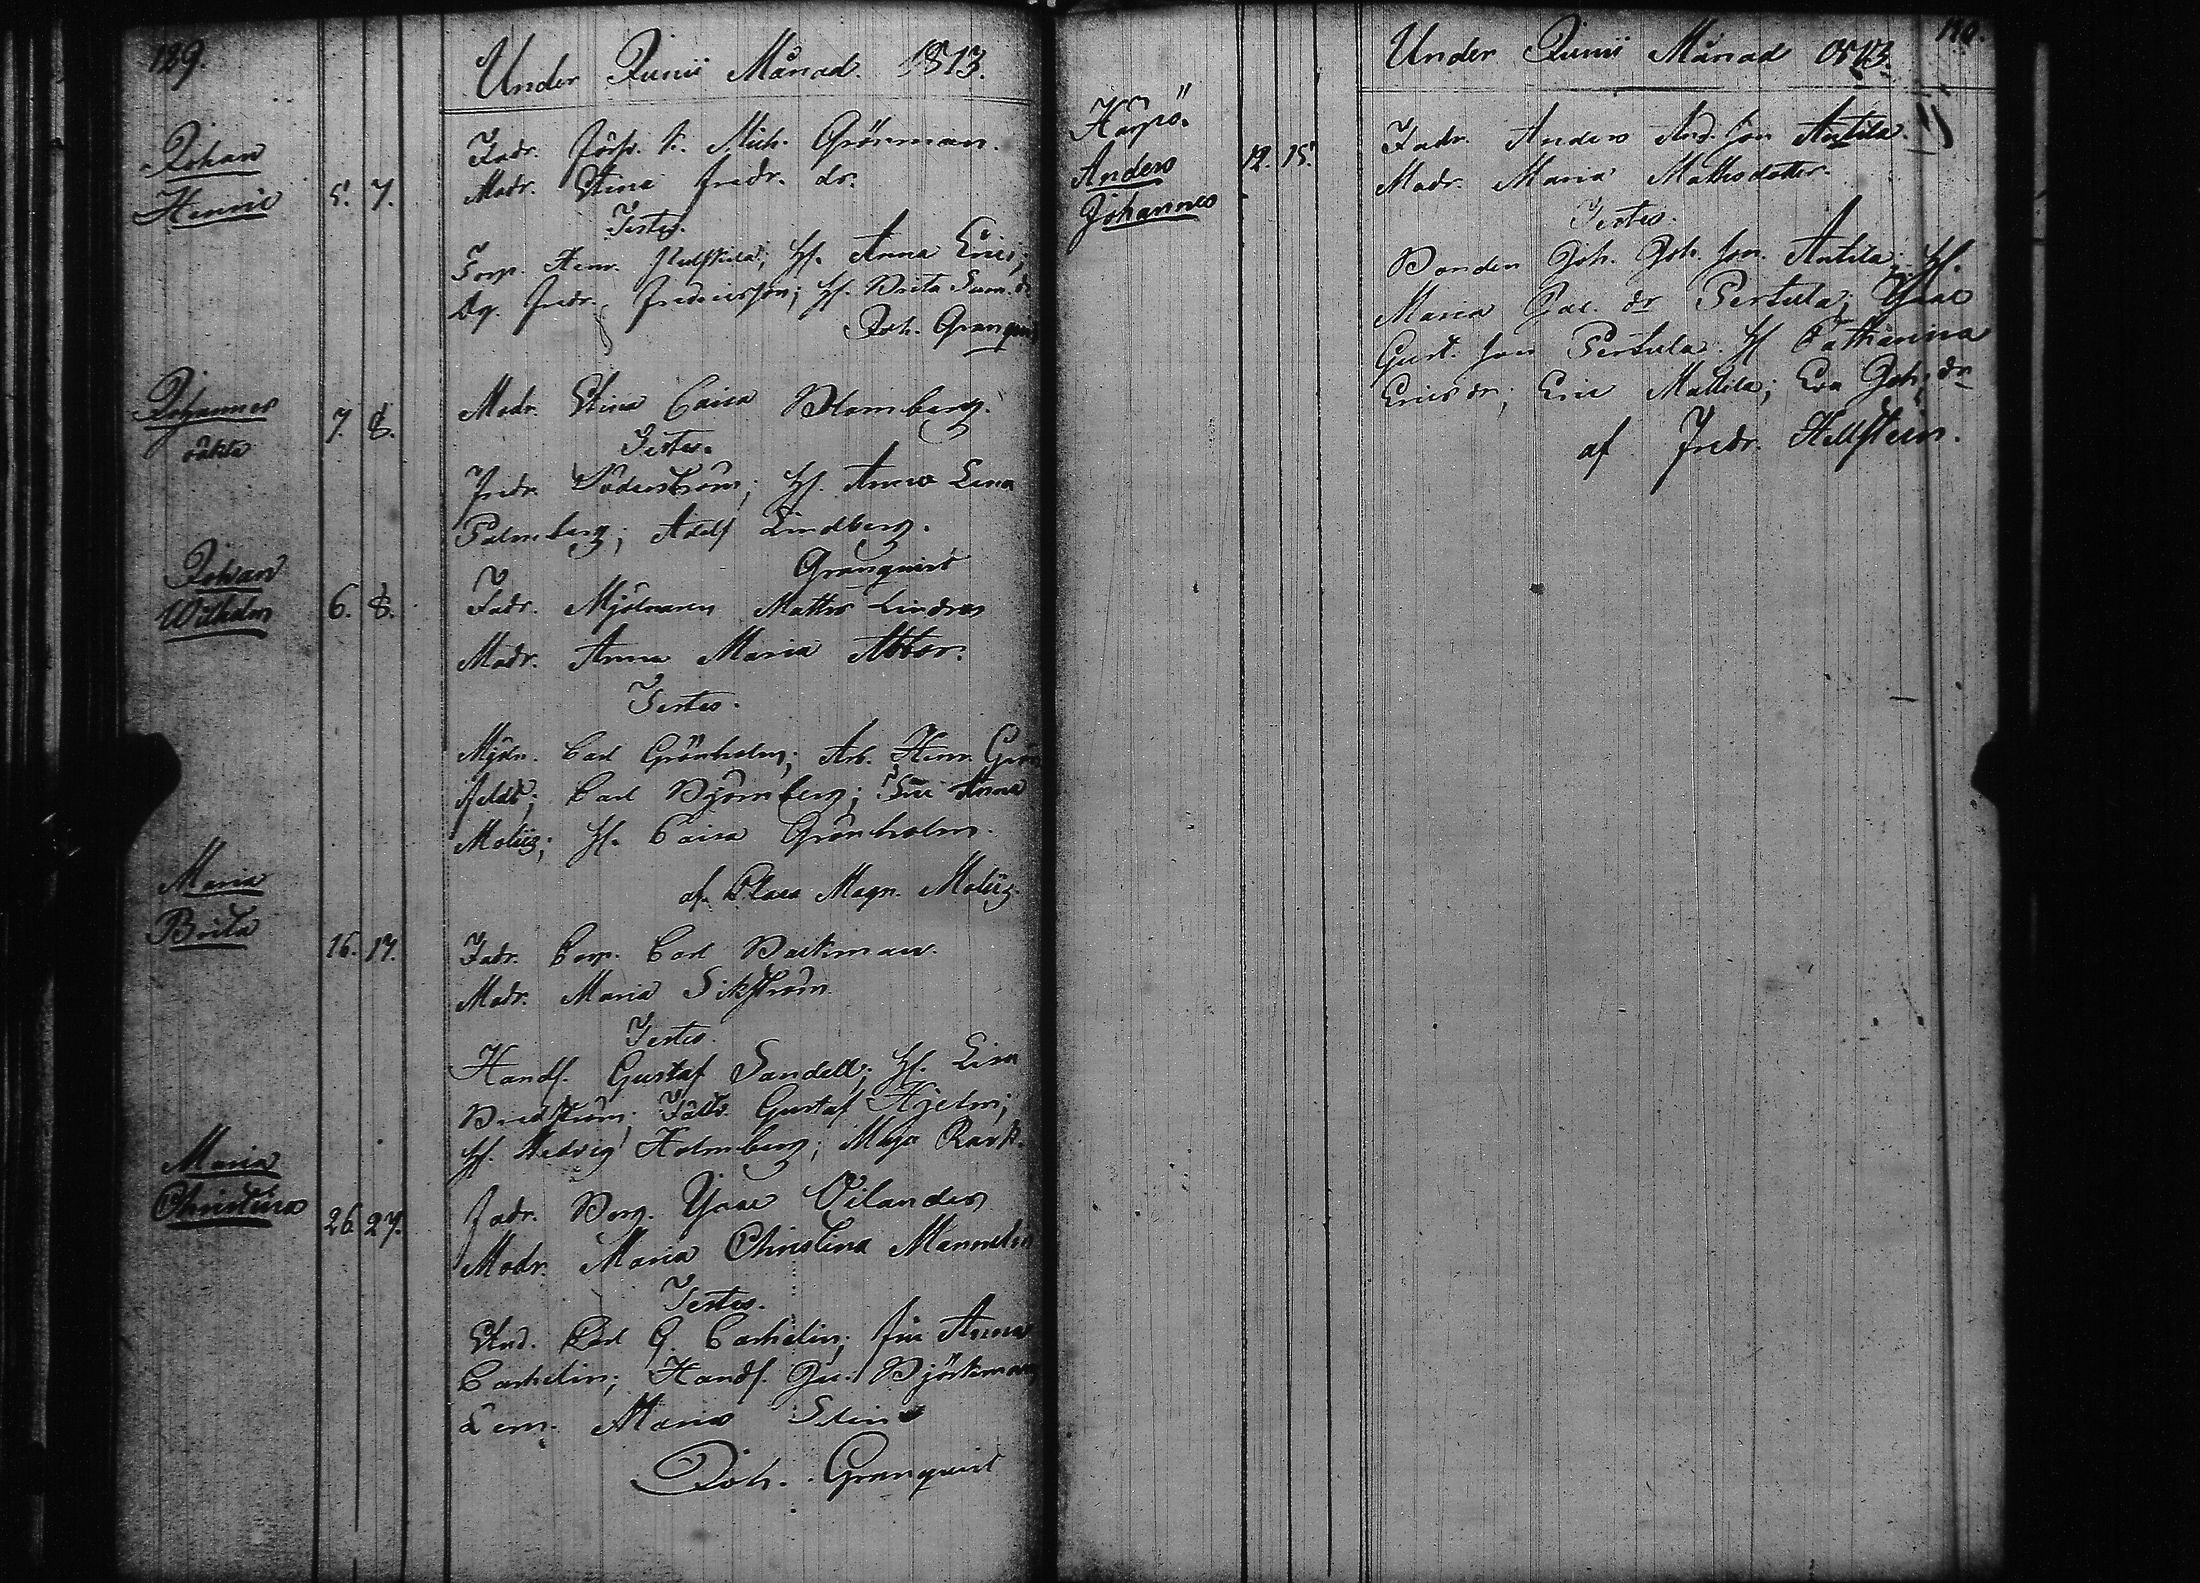 189.
Under Junii Månad. 1813.
Johan
Henric 5. 7.
Fadr. Förp. k. Mich. Grönman.
Modr. Stina Fredr. dr.
Testes.
Torp. Henr. H. Anna Erics;
Dg. Fredr. Fredricsson; H. Brita Sam. dr
Joh. Granquist
Johannes
oäkta 7. 8.
Modr. Stina Caisa Blomberg.
Testes.
Fredr. Söderström; H. Anna Lena
Palmberg; Adolf Lindberg.
Granquist
Johan
Wilhelm 6. 8.
Fadr. Mjölnaren Matths Lindros
Modr. Anna Maria Abbor.
Testes.
Mjöln. Carl Grönholm; Arb. Henr. Grön
feldt; Carl Björnberg; Anna
Moliiz; H. Caisa Grönholm.
af Claes Magn. Moliiz.
Maria
Brita 16. 17.
Fadr. Corp. Carl Backman.
Modr. Maria Sikström.
Testes.
Handl. Gustaf Sandell; H. Lisa
Bredström; Fältv. Gustaf Hjelm;
H. Hedvig Holmberg; Maja Rask.
Maria
Christina 26. 27.
Fadr. Borg. Isac Vilander
Modr. Maria Christina Mannelin
Testes.
Stud. Carl G. Cachelin; Anna
Cachelin; Handl. Gu. Björkman
Dem. Maria Stina
Joh. Granquist
Under Junii Månad 1813. 190.
Harjo.
Anders
Johannes 12. 15.
Fadr. Anders And. son Antila.
Modr. Maria Mathsdotter.
Testes.
Bonden Joh. Joh. son Antila; H.
Maria Isac. dr Pertula; Isac
Gust. son Pertula. H Catharina
Ericsdr; Eric Mattila; Eva Joh. dr
af Fredr. Hellsten.